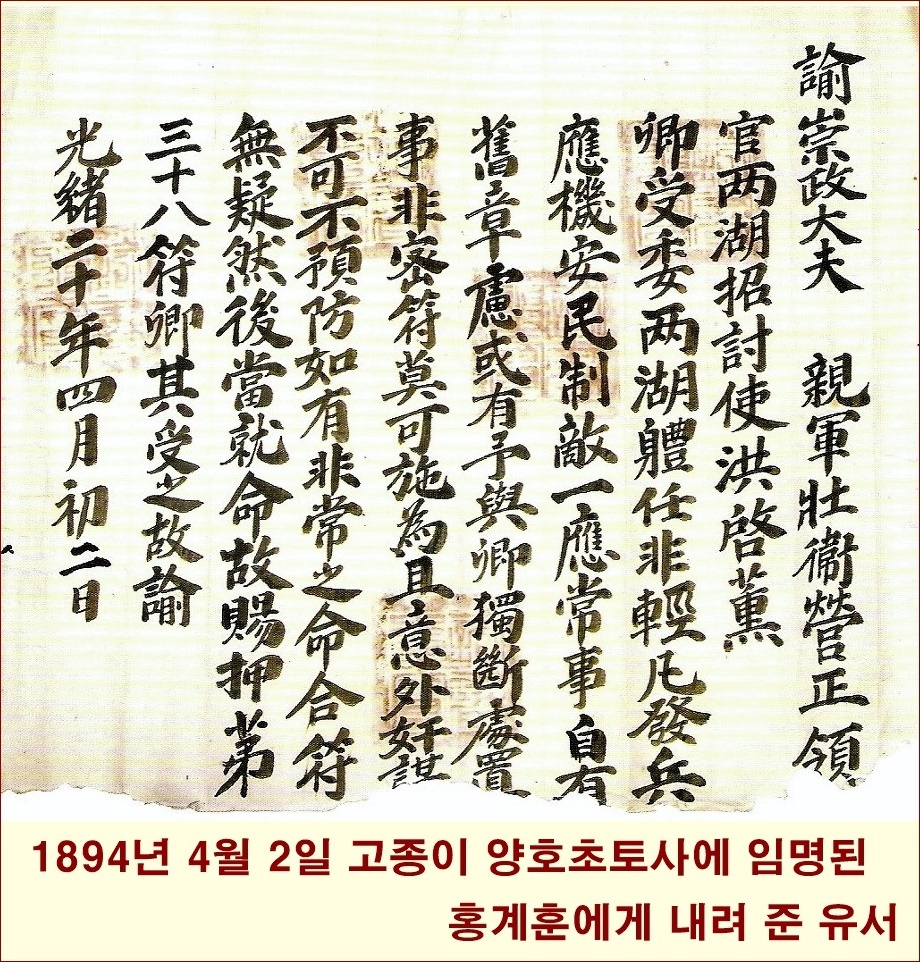 諭崇政大夫 親軍壯衛營正領
官两湖招討使洪啓薰
卿受委两湖軆任非輕凡發兵
應機安民制敵一應常事自有
舊章慮或有予與卿獨斷處置
事非密符莫可施為且意外奸謀
不可不預防如有非常之命合符
無疑然後當就命故賜押苐
三十八符卿其受之故諭
光緒二十年四月初二日
1894년 4월 2일 고종이 양호초토사에 임명된
홍계훈에게 내려 준 유서